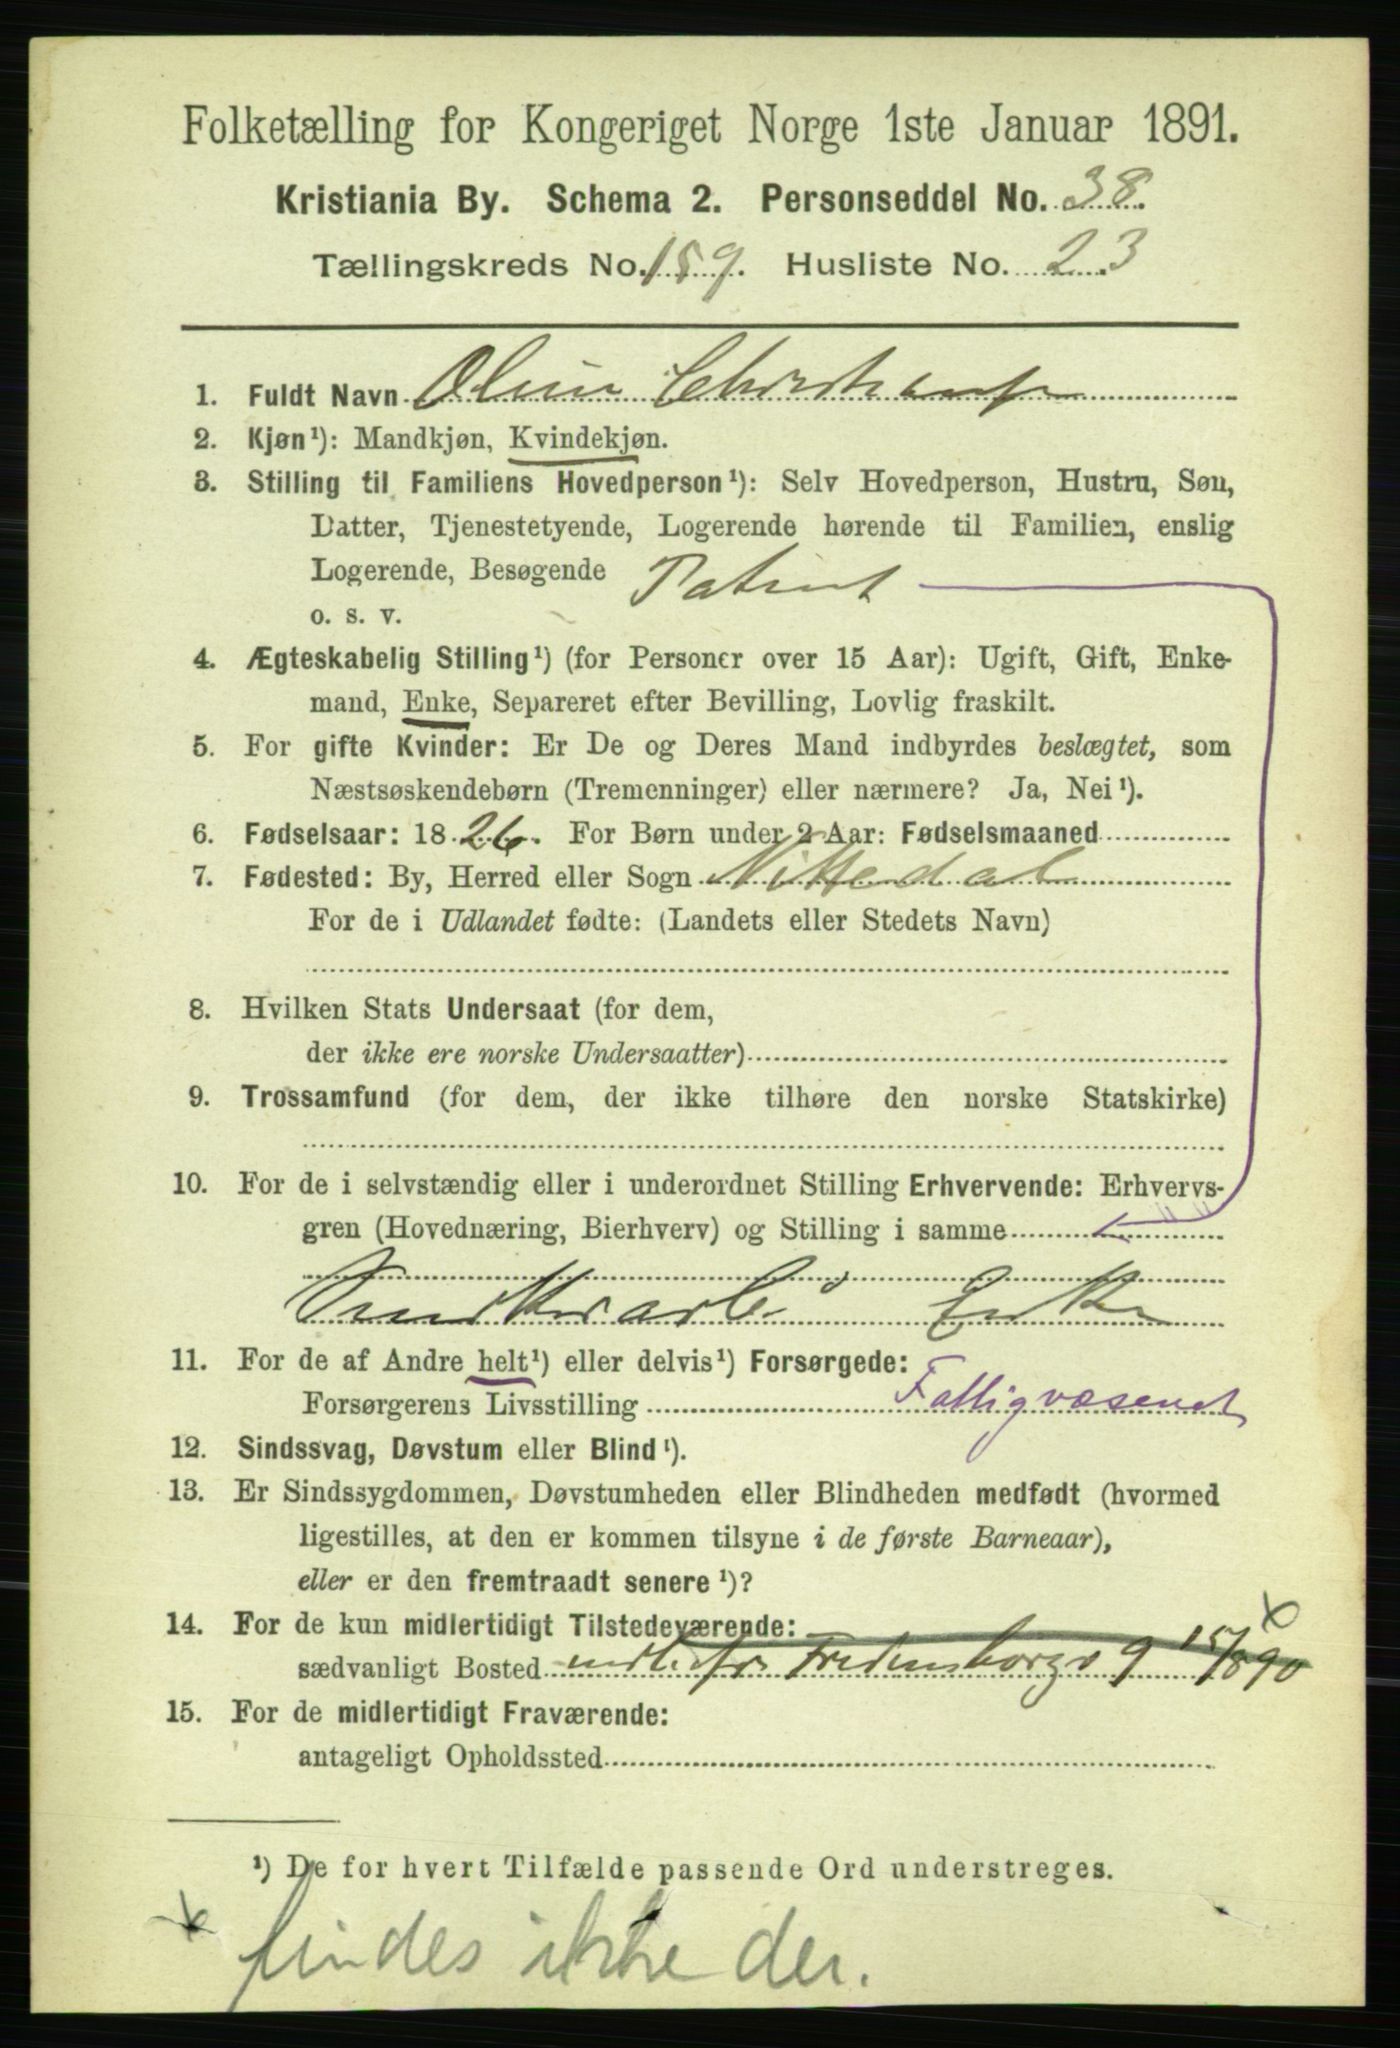 Folketælling for Kongeriget Norge 1ste Januar 1891.
Kristiania By. Schema 2. Personseddel No. 38.
Tællingskreds No. 159. Husliste No. 23
1. Fuldt Navn Oline Christians
2. Kjøn¹): Mandkjøn, Kvindekjøn.
3. Stilling til Familiens Hovedperson¹): Selv Hovedperson, Hustru, Søn,
Datter, Tjenestetyende, Logerende hørende til Familien, enslig
Logerende, Besøgende Patient
o. s. v.
4. Ægteskabelig Stilling¹) (for Personer over 15 Aar): Ugift, Gift, Enke-
mand, Enke, Separeret efter Bevilling, Lovlig fraskilt.
5. For gifte Kvinder: Er De og Deres Mand indbyrdes beslægtet, som
Næstsøskendebørn (Tremenninger) eller nærmere? Ja, Nei¹).
6. Fødselsaar: 1826. For Børn under 2 Aar: Fødselsmaaned
7. Fødested: By, Herred eller Sogn Nittedal
For de i Udlandet fødte: (Landets eller Stedets Navn)
8. Hvilken Stats Undersaat (for dem,
der ikke ere norske Undersaatter)
9. Trossamfund (for dem, der ikke tilhøre den norske Statskirke)
10. For de i selvstændig eller i underordnet Stilling Erhvervende: Erhvervs-
gren (Hovednæring, Bierhverv) og Stilling i samme
Enke
11. For de af Andre helt¹) eller delvis¹) Forsørgede:
Forsørgerens Livsstilling Fattigvæsenet
12. Sindssvag, Døvstum eller Blind¹).
13. Er Sindssygdommen, Døvstumheden eller Blindheden medfødt (hvormed
ligestilles, at den er kommen tilsyne i de første Barneaar),
eller er den fremtraadt senere¹)?
14. For de kun midlertidigt Tilstedeværende: x
sædvanligt Bosted indl. fr. Fredensborgv 9 15/8 90
15. For de midlertidigt Fraværende:
antageligt Opholdssted
¹) De for hvert Tilfælde passende Ord understreges.
x findes ikke der.